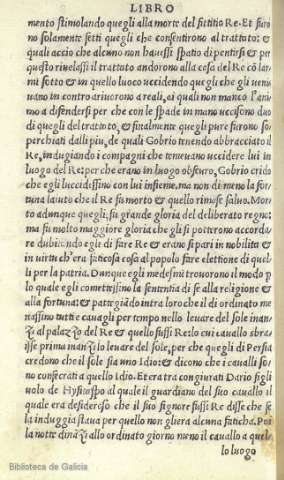 LIBRO
mento stimolando quegli alla morte del fittitio Re. Et furo
no solamente setti quegli che consentirono al trattato: &
quali accio che alcuno non hauessi spatio di pentirsi & per
questo riuelassi il trattato andorono alla casa del Re cō l'ar
mi sotto & in quello luoco uccidendo quegli che gli ueni
uano in contro ariuorono a reali, ai quali non manco l'ani
mo a difendersi per che con le spade in mano uccisono duo
di quegli del trattato, & finalmente quegli pure furono so
perchiati dalli piu, de quali Gobrio tenendo abbracciato il
Re, indugiando i compagni che temeuano uccidere lui in
luogo del Re: per che erano in luogo obscuro, Gobrio crido
che egli luccidessino con lui insieme. ma non di meno la for
tuna l'aiuto che il Re fu morto & quello rimase saluo. Mor
to adunque quegli, fu grande gloria del deliberato regno:
ma fu molto maggiore gloria che gli si potterono accorda
re dubitando egli di fare Re & erano si pari in nobilita &
in uirtu ch'era faticosa cosa al popolo fare elettione di quel
li per la patria. Dunque egli medesmi trouorono il modo p
lo quale egli comettessino la sententia di se alla religione &
alla fortuna: & patteggiādo intra loro che il di ordinato me
nassino tutti e cauagli per tempo nello leuare del sole inan
zi al palazzo del Re & quello fussi Re: lo cui cauallo sbra
isse primo inanzi lo leuare del sole, per che quegli di Persia
credono che il sole sia uno Idio: & dicono che i caualli so
no consecrati a quello Idio. Et era tra congiurati Dario figli
uolo de Hystaspo al quale il guardiano del suo cauallo il
quale era desideroso che il suo signore fussi Re disse che se
la induggia staua per quello non gliera alcuna faticha. Poi
la notte dinanzi allo ordinato giorno meno il cauallo a quel
lo luogo
Biblioteca de Galicia